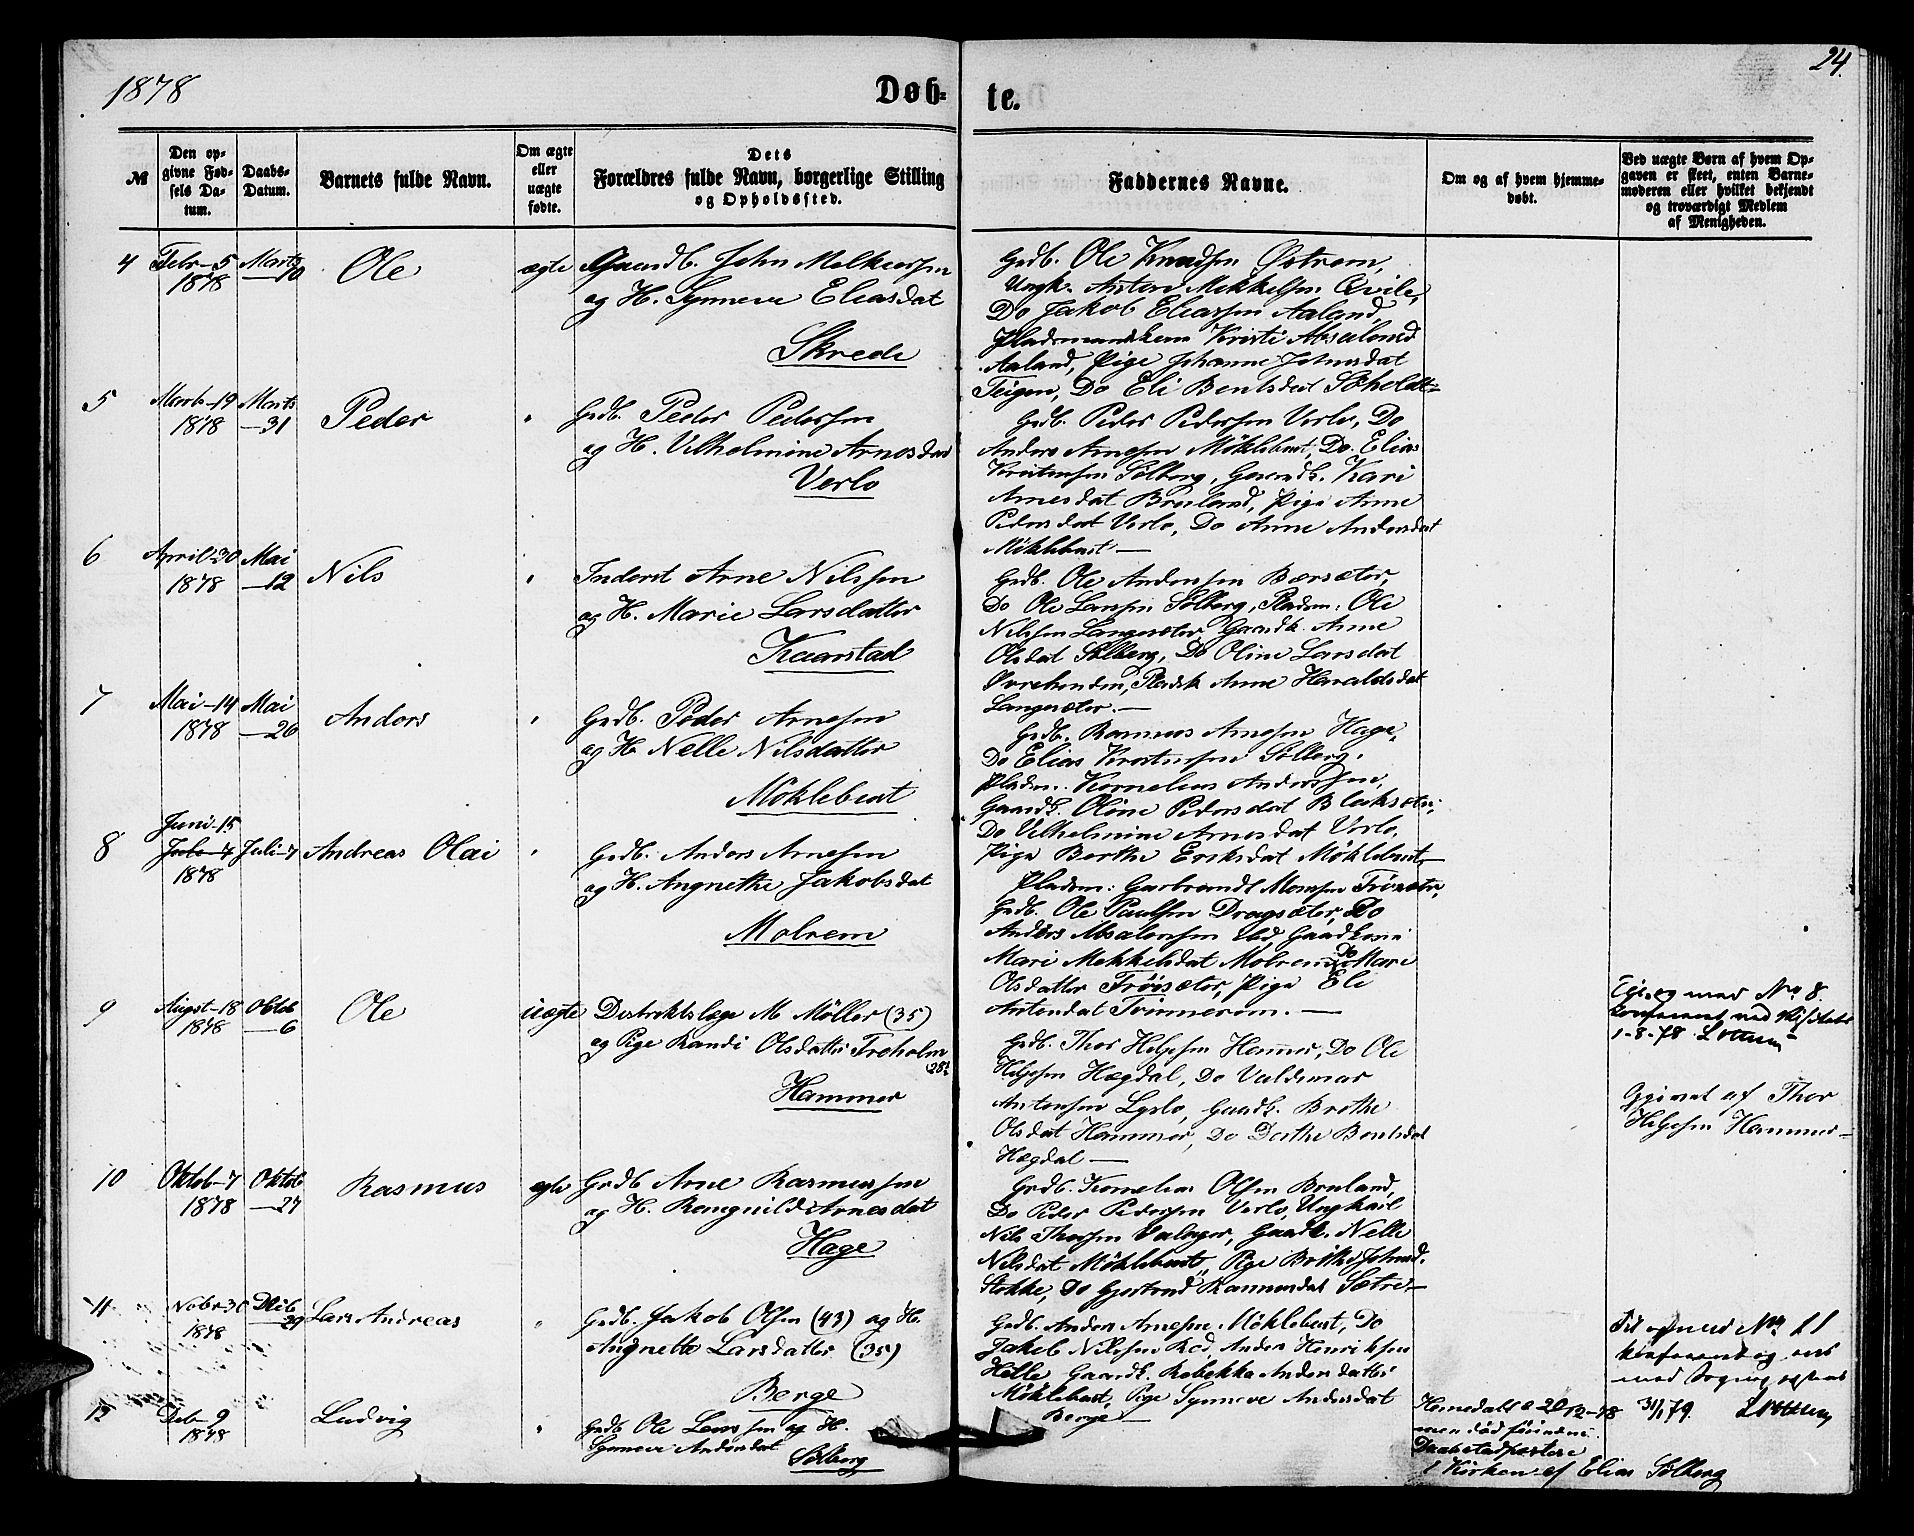 1878
Døb-
te.
24.
№
Den op-
givne Fød-
sels Da-
tum.
Daabs-
Datum.
Barnets fulde Navn.
Om ægte
eller
uægte
fødte.
Dets
Forældres fulde Navn, borgerlige Stilling
og Opholdssted.
Faddernes Navne.
Om og af hvem hjemme-
døbt.
Ved uægte Børn af hvem Op-
gaven er skeet, enten Barne-
moderen eller hvilket bekjendt
og troværdigt Medlem
af Menigheden.
4
Febr-5
1878
Marts
-10
Ole
ægte
Gaardb. John Melkiorsen
og H. Synneve Eliasdat
Skrede
Grdb. Ole Knudsen Østrem,
Ungk. Anton Mikkelsen Qvile,
Do Jakob Eliassen Aaland,
Plademandskone Kirsti Absalonsd
Aaland, Pige Johanne Johnsdat
Teigen, Do Eli Bentsdat Søholdt-
5
Marts-19
1878
Marts
-31
Peder
"
Grdb. Peder Pedersen
og H. Vilhelmine Arnesdat
Verlo
Grdb. Peder Pedersen Verlo, Do
Anders Arnesen Møklebust, Do. Elias
Kristensen Solberg, Gaardk. Kari
Arnesdat Bruland, Pige Anne
Pedersdat Verlo, Do Anne Andersdat
Møklebust-
6
April-30
1878
Mai
-12
Nils
"
Inderst Arne Nilssen
og H. Marie Larsdatter
Kaarstad
Grdb. Ole Anderssen Bærsæter,
Do Ole Larssen Solberg, Pladsm: Ole
Nilssen Langesæter, Gaardk. Anne
Olsdat Solberg, Do Oline Larsdat
Øvrebunden, Pladsk Anne Haraldsdat
Langesæter.-
7
Mai-14
1878
Mai
-26
Anders
"
Grdb. Peder Arnesen
og H Nelle Nilsdatter
Møklebust
Grdb. Rasmus Arnesen Hage,
Do Elias Kristensen Solberg,
Pladsm. Kornelius Anderssen,
Gaardk. Oline Pedersdat Bleksæter,
Do Vilhelmine Arnesdat Verlo,
Pige Berthe Eriksdat Møklebust-
8
Juni-15
Juli-7
1878
Juli-7
Andreas Olai
"
Grdb. Anders Arnesen
og H. Angnethe Jakobsdat
Molrem
Pladsm: Garbrandt Monssen Frøisæter,
Grdb. Ole Paulsen Dragsæter, Do
Anders Absalonsen ibd, Gaardkone
Mari Mikkelsdat Molrem, Do Mari
Olsdatter Frøisæter, Pige Eli
Antondat Timmerim.-
9
August-18
1878
Oktob
-6
Ole
uægte
Distriktslæge M Møller (35)
og Pige Randi Olsdatter Troholm
(28)
Hammer
Grdb. Thor Helgesen Hammer, Do Ole
Helgesen Hægdal, Do Valdemar
Antonsen Lyslo, Gaardk. Brothe
Olsdat Hammer, Do Dorthe Bentsdat
Hægdal-
med No 8.
konfereret ved Visitats
1-8-78
Opgivet af Thor
Helgesen Hammer-
10
Oktob-7
1878
Oktob
-27
Rasmus
ægte
Grdb Arne Rasmussen
og H. Rangnild Arnesdat
Hage
Grdb. Kornelius Olsen Bruland,
Do Peder Pedersen Verlo, Ungkarl
Nils Thorsen Valager, Gaardk. Nelle
Nilsdat Møklebust, Pige Brithe Johnsd.
Stokke, Do Gjertrud Rasmusdat Sætre-
11
Nobr-30
1878
Deb
-29
Lars Andreas
"
Grdb. Jakob Olsen (43) og H.
Angnethe Larsdatter (35)
Berge
Grdb. Anders Arnesen Møklebust, Do
Jakob Nilssen Rød, Anders Henriksen
Helle, Gaardk. Rebekka Andersdatter
Møklebust, Pige Synneve Andersdat
Berge-
Til og med No 11
31/1 79.
12
Deb-9
1878
Ludvig
"
Grdb Ole Larssen og H.
Synneve Andersdat
Solberg
Hjemedøbt d 20 12-78
men død førinden
i Kirken af Elias Solberg